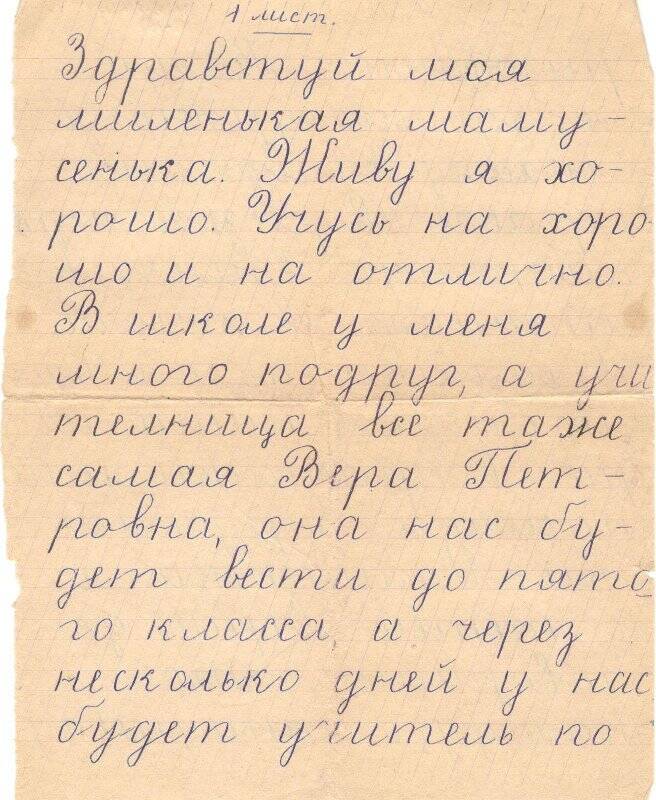 1 лист.
Здравстуй моя
миленькая маму-
сенька. Живу я хо-
рошо. Учусь на хоро
шо и на отлично.
В школе у меня
много подруг, а учи
телница все таже
самая Вера Пет-
ровна, она нас бу-
дет вести до пято
го класса, а через
несколько дней у нас
будет учитель по